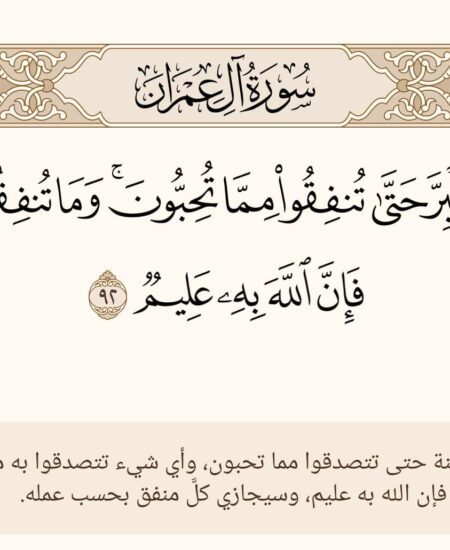 سُورَةُ آلِ عِمْرَانَ
حَتَّىٰ تُنفِقُوا۟ مِمَّا تُحِبُّونَ ۚ وَمَا
فَإِنَّ ٱللَّهَ بِهِۦ عَلِيمٌ ٩٢
حتى تتصدقوا مما تحبون، وأي شيء تتصدقوا به
فإن الله به عليم، وسيجازي كلَّ منفق بحسب عمله.